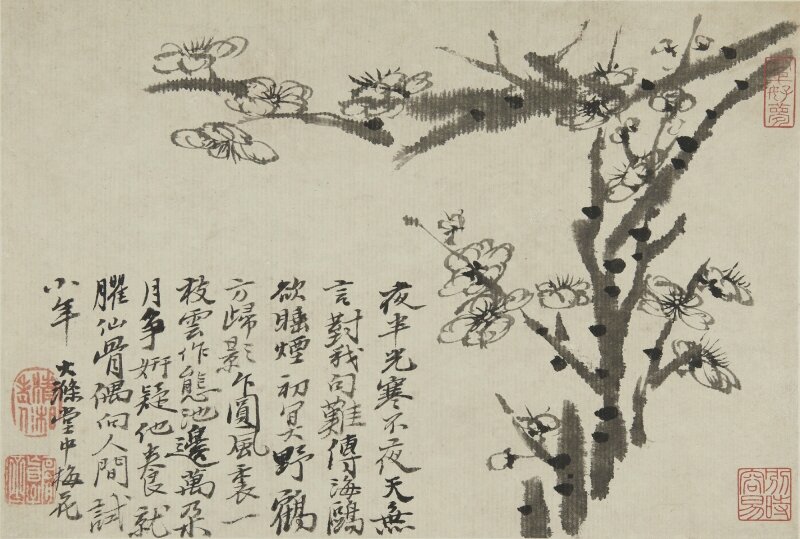 夜半光寒不夜天無
言對我句難傳海鷗
欲睡煙初冥野鶴
方歸影乍圓風裏一
枝雲作態池邊萬朵
月爭妍疑他養就
臞仙骨偶向人間試
小年 大滌堂中梅花
別時容易